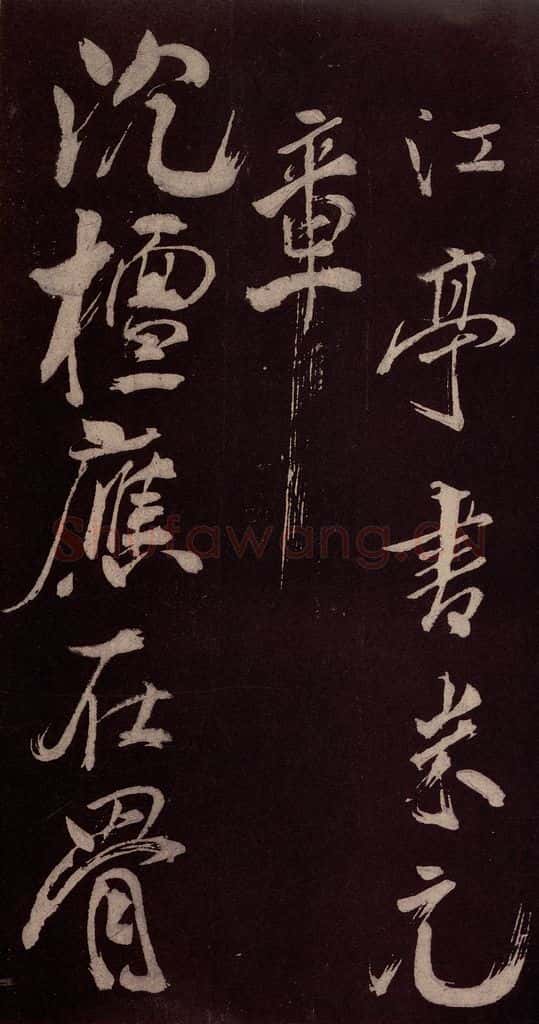 江亭書米元
章
沉檀應在骨
Shufawang.cn